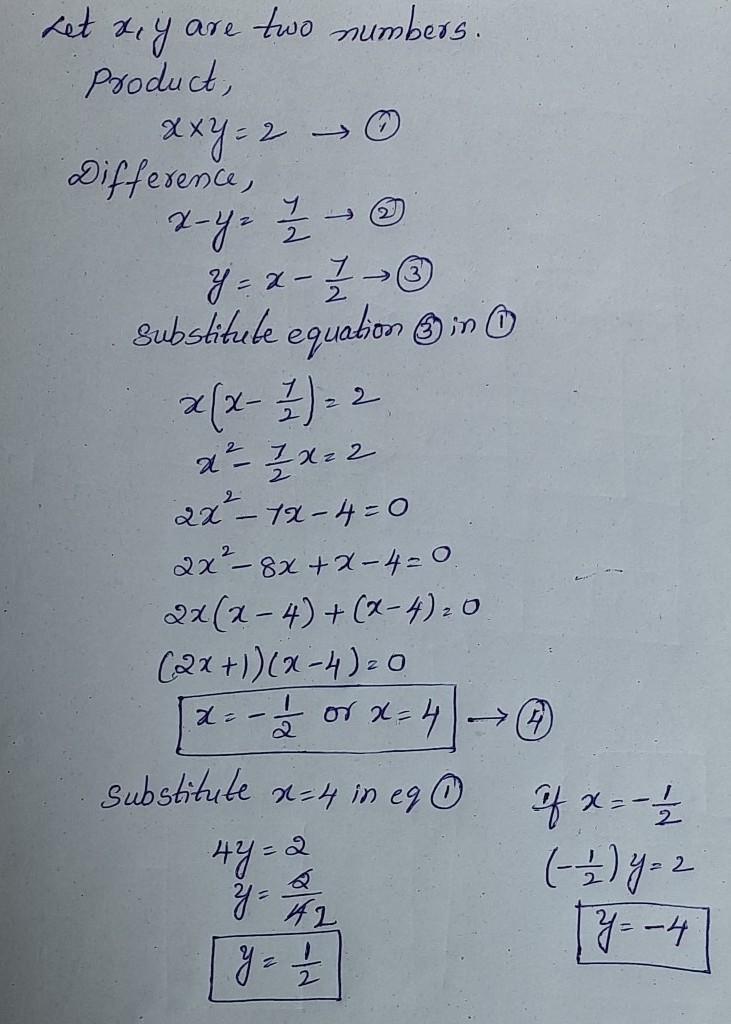 Let x, y are two numbers.
Product,
x×y=2 → ①
Difference,
x-y= 7/2 → ②
y = x - 7/2 → ③
substitute equation ③ in ①
x(x- 7/2) = 2
x² - 7/2 x = 2
2x² - 7x - 4 = 0
2x² - 8x + x - 4 = 0
2x(x - 4) + (x-4) = 0
(2x+1)(x-4) = 0
x = - 1/2 or x = 4 → ④
Substitute x=4 in eq ①
4y = 2
y = 2/4 2
y = 1/2
If x = - 1/2
(- 1/2) y = 2
y = -4